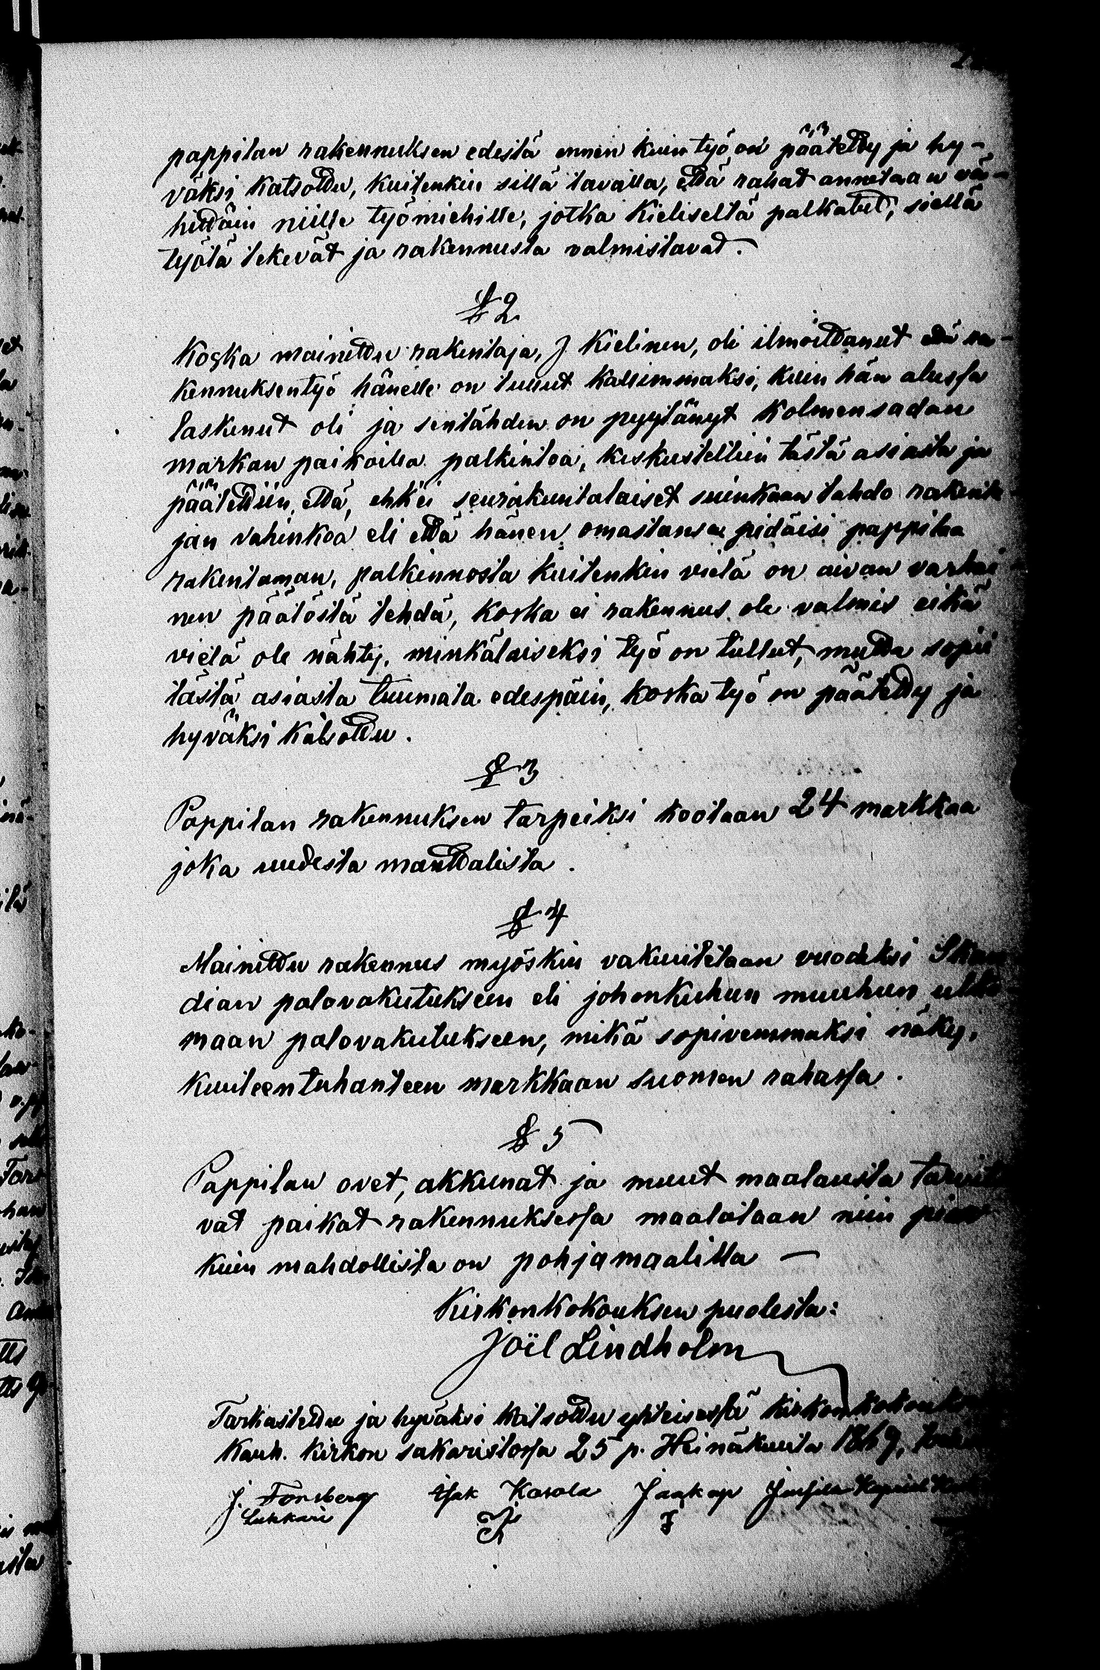 pappilan rakennuksen edestä ennen kuin työ on päätetty ja hy-
väksi katsottu, kuitenkin sillä tavalla, että rahat annetaan vä-
hittäin niille työmiehille, jotka Kieliseltä palkatut, siellä
työtä tekevät ja rakennusta valmistavat.
§ 2
Koska mainittu rakentaja, J. Kielinen, oli ilmoittanut että ra-
kennuksentyö hänelle on tullut kalliimmaksi, kuin hän alussa
laskenut oli ja sentähden on pyytänyt Kolmensadan
markan paikoilla palkintoa, keskusteltiin tästä asiasta ja
päätettiin, että, ehk'ei seurakuntalaiset suinkaan tahdo rakenta-
jan vahinkoa eli että hänen omastansa pidäisi pappilaa
rakentaman, palkinnosta kuitenkin vielä on aivan varhai
nen päätöstä tehdä, koska ei rakennus ole valmis eikä
vielä ole nähty, minkälaiseksi työ on tullut, mutta sopii
tästä asiasta tuumata edespäin, koska työ on päätetty ja
hyväksi katsottu.
§ 3
Pappilan rakennuksen tarpeiksi kootaan 24 markkaa
joka uudesta manttalista.
§ 4
Mainittu rakennus myöskin vakuutetaan vuodeksi Skan
dian palovakutukseen eli johonkuhun muuhun ulko
maan palovakutukseen, mikä sopivemmaksi näkyy,
kuuteentuhanteen markkaan suomen rahassa.
§ 5
Pappilan ovet, akkunat ja muut maalausta tarvit
vat paikat rakennuksessa maalataan niin pian
kuin mahdollista on pohjamaalilla —
Kirkonkokouksen puolesta:
Joël Lindholm
Tarkastettu ja hyväksi katsottu yhteisessä kirkonkokouksessa
Kauh. kirkon sakaristossa 25 p. Heinäkuuta 1869,
J. Forsberg Isak Karola Jaakop
Lukkari